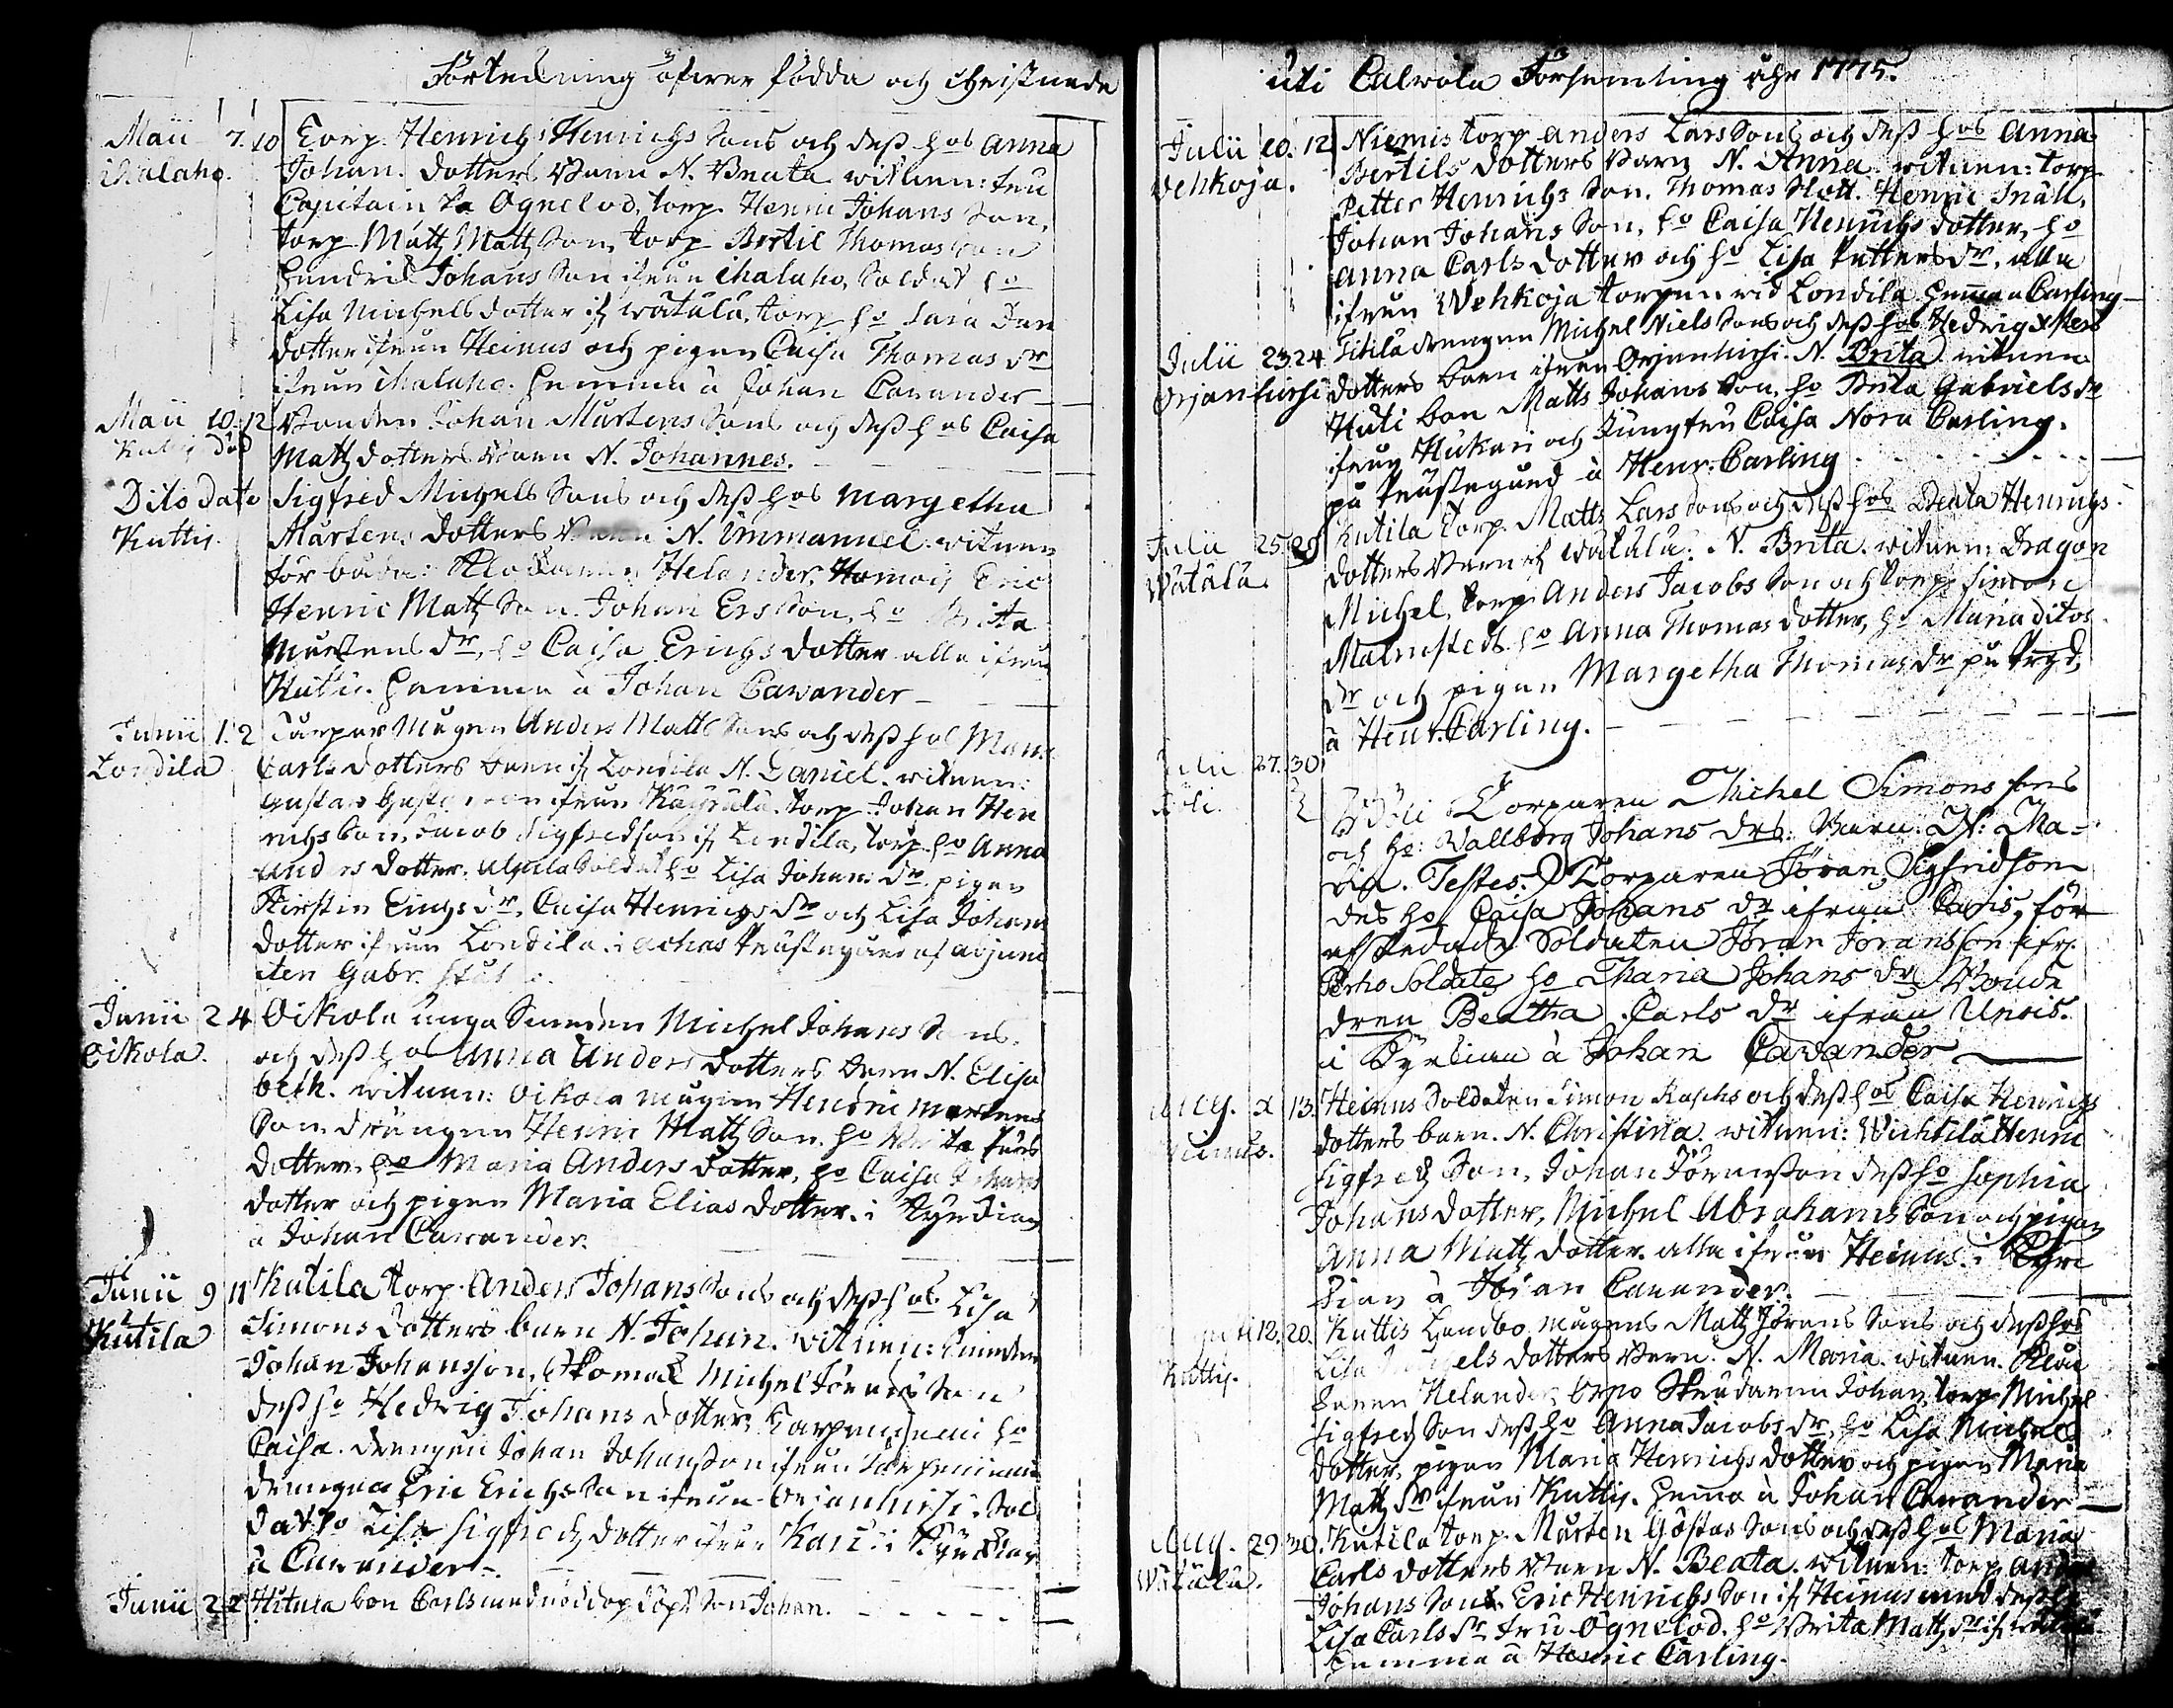 Förteckning öfwer födda och Christnade
Maii 7. 10 Torp. Henrichs Henrichs Sons och dess hos Anna
Ihalaho. Johan. dotters Barn N. Beata witnen: fru
Capitain Ognelod, torp. Henric Johans Son,
torp Matts Matts Son, torp Bertil Thomas Son
Hendric Johans Son ifrån Ihalaho, Soldat ho
Lisa Michels dotter if Wätälä, torp ho Sara Dan
dotter ifrån Heinus och pigan Caisa Thomas dr
ifrån Ihalaho. hemma à Johan Cavander
Maii 10. 12 Bonden Johan Mårtens Sons och dess hos Caisa
Kuttis död Matts dotters Barn N. Johannes.
Dito dato Sigfred Michels Sons och dess hos Margetha
Kuttis. Mårtens dotters N. Immanuel witnen
för båda: Helander, Eric
Henric Matts Son. Johan Ers Son, ho Brita
Mårtens dr, ho Caisa Erichs dotter alla ifrån
Kuttis. hemma à Johan Cavander
Junii 1. 2 Anders Matts Sons och dess hos Maria
Londila Carls dotters barn if Londila N. Daniel. witnen:
Gustav ifrån torp Johan Hen
richs Son, Jacob Sigfredson if Londila, torp. ho Anna
Anders dotter. Soldat ho Lisa Johans dr pigan
Kirstin Erichs dr, Caisa Henrichs dr och Lisa Johans
dotter ifrån Londila. i Achas prästegård af adjunc
ten Gabr.
Junii 2 4 Oikola unga Michel Johans Sons
Oikola. och dess hos Anna Anders dotters barn N. Elisa
beth. witnen: Oikola mågen Hendric Mårtens
Son, drängen Henric Matts Son. ho Brita Lars
dotter, ho Maria Anders dotter, ho Caisa Johans
dotter och pigan Maria Elias dotter. i Kyrckian
à Johan Cavander.
Junii 9 11 Kutila torp. Anders Johans Sons och dess hos Lisa
Kutila Simons dotters barn N. Johan. witnen:
Johan Johansson, Michel Görans Son
dess ho Hedvig Johans dotter, ho
Caisa. drengen Johan Johans Son ifrån
drengen Eric Erichs Son ifrån Orjanhirsi. Sol
dat ho Lisa Sigfreds dotter ifrån Kari i Kyrckian
à Cavander.
Junii 22 bon Carls med nöddop döpt Son Johan.
uti Calwola Församling åhr 1775.
Julii 10. 12 Niemis torp. Anders Lars Sons och dess hos Anna
Wehkoja. Bertils dotters Barn N. Anna witnen: torp.
Petter Henrichs Son. Thomas Henric Snäll.
Johan Johans Son, ho Caisa Henrichs dotter, ho
Anna Carls dotter och ho Lisa Petters dr. alla
ifrån Wehkoja torpen wid Londila hemma a Carling
Julii 23. 24 Titila drengen Michel Niels Sons och dess hos Hedvig
Orjanhirsi dotters barn ifrån Orjanhirsi. N. Brita witnen
Huti bon Matts Johans Son, ho Brita Gabriels dr
ifrån Hukari och Jungfru Caisa Nora Carling.
på prästegård à Henr. Carling
Julii 25. 29 Kutila torp. Matts Lars Sons och dess hos Beata Henrichs
Wätälä dotters barn if Wätälä. N. Brita. witnen: Dragon
Michel, torp Anders Jacobs Son och torp. Simon
Malmstedt. ho Anna Thomas dotter, ho Maria ditos
dr och pigan Margetha Thomas dr på Prgd,
à Henr. Carling.
Julii 27. 30
Torparen Michel Simons sons
och ho: Wallborg Johans drs: Barn. N: Ma-
ria. Testes. Torparen Jöran Sigfridson
des ho Caisa Johans dr ifrån för
afskedade Soldaten Jöran Joransson ifr.
Perho Soldate ho Maria Johans dr Bonde
dren Beatha Carls dr ifrån Unois.
i Kyrkian à Johan Cavander
Aug. 13. Heinus Soldaten Simon Raschs och dess hos Caisa Henrichs
Heinus. dotters barn. N. Christina. witnen: Wichtilä Henric
Sigfreds Son, Johan Jöransson dess ho Sophia
Johans dotter, Michel Abrahams Son och pigan
Anna Matts dotter. alla ifrån Heinus. i Kyrc
kian à Johan Cavander.
12. 20. Kuttis Landbo mågens Matts Jörans Sons och dess hos
Kuttis. Lisa dotters Barn. N. Maria. witnen.
Helander, Johan, torp. Michel
Sigfreds Son dess ho Anna Jacobs dr, ho Lisa Michels
dotter, pigan Maria Henrichs dotter och pigan Maria
Matts dr ifrån Kuttis. hemma à Johan Cavander
Aug. 29. 30. Kutila torp. Mårten Göstas Sons och dess hos Maria
Wätälä. Carls dotters Barn N. Beata. witnen: torp. Anders
Johans Son. Eric Henrichs Son if Heinus med dess ho
Lisa Carls dr fru Ognelod. ho Brita Matts dr if
hemma à Henric Carling.